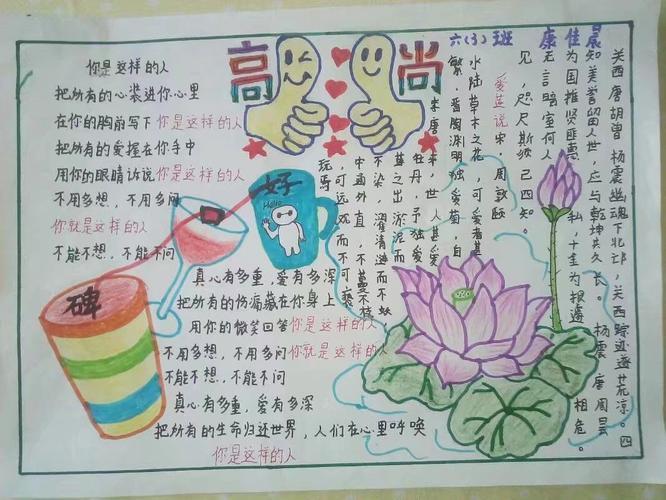 高尚
六(3)班 康佳晨
你是这样的人
把所有的心装进你心里
在你的胸前写下你是这样的人
把所有的爱握在你手中
用你的眼睛诉说你是这样的人
不用多想，不用多问
你就是这样的人
不能不想，不能不问
好
Hello
碑
真心有多重，爱有多深
把所有的伤痛藏在你身上
用你的微笑回答你是这样的人
不用多想，不用多问你就是这样的人
不能不想，不能不问
真心有多重，爱有多深
把所有的生命归还世界，人们在心里呼唤
你是这样的人
关西唐胡曾 杨震幽魂下北邙，关西踪迹遂荒凉。四
知美誉留人世，应与乾坤共久长。杨震 唐周昙
为国推贤匪惠私，十金为报遽相危。
无言暗室何人
见，咫尺斯须已四知。
爱莲说 宋 周敦颐
水陆草木之花，可爱者甚
繁。晋陶渊明独爱菊。自
唐来，世人甚爱
牡丹，予独爱
莲之出淤泥而
不染，濯清涟而不妖，
中通外直，不蔓不枝
，可远观而不可亵
玩焉